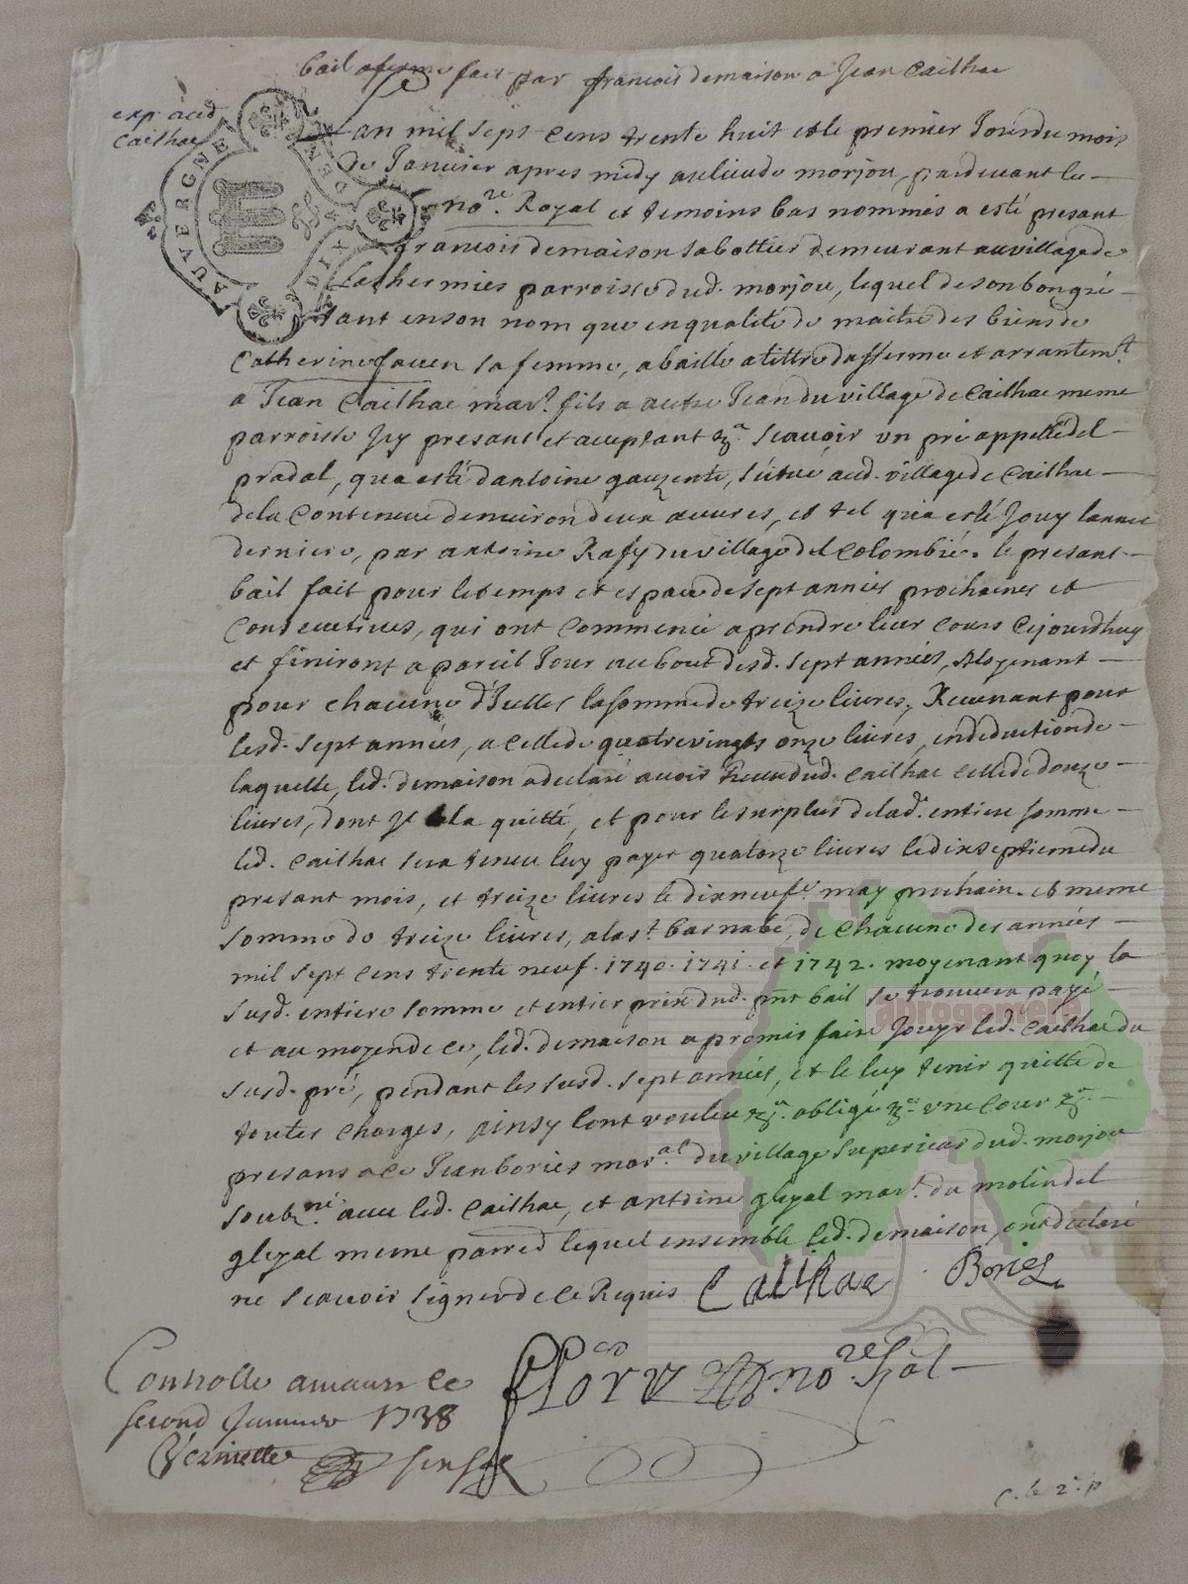 bail aferme fait par francois demaison a Jean Cailhac
exp. aud.
Cailhac
AUVERGNE
DIX DEN
Lan mil sept cens trente huit et le premier Jour du mois
de Janvier apres midy au lieu de morjou, pardevant le
nore. Royal et temoins bas nommés a esté presant
francois demaison sabottier demeurant au village de
Lashermies parroisse dud. morjou, lequel de son bon gré
tant en son nom que en qualité de maitre des biens de
Catherine sa femme, a baillé a tittre dafferme et arrantemt.
a Jean Cailhac mart. fils a autre Jean du village de Cailhac meme
parroisse Jcy presant et acceptant scavoir un pré appellé del
pradal, qua esté dantoine gauzente, situé aud. village de Cailhac
de la Contenue denviron deux œuvres, et tel qu'a esté Jouy lannee
derniere, par antoine Rafy du village del Colombié. le presant
bail fait pour le temps et espace de sept années prochaines et
Consecutives, qui ont Commencé a prendre leur cours cejourdhuy
et finiront a pareil Jour au bout desd. sept années, Moyenant
pour chacune d'Jcelles la somme de treize livres, Revenant pour
lesd. sept années, a celle de quatrevingts onze livres, en deduction de
laquelle, led. demaison a declaré avoir Receu dud. Cailhac celle de douze
livres, dont Jl la quitté, et pour le surplus de lad. entiere somme
led. Cailhac sera tenu luy payer quatorze livres le dixseptieme du
presant mois, et treize livres le dixneufe. may prochain. et meme
somme de treize livres, a la st. barnabé, de chacune des années
mil sept cens trente neuf. 1740. 1741. et 1742. moyenant quoy la
susd. entiere somme et entier prix dud. pnt bail se trouvera payé
et au moyen de ce, led. demaison a promis faire Jouyr led. Cailhac du
susd. pré, pendant les susd. sept années, et le luy tenir quitte de
toutes charges, ainsy lont voulu obligé une Cour
presans a ce Jean bories mar.al du village Superieur dud. morjou
soubz.né avec led. Cailhac, et antoine gleyal mart. du molin del
gleyal meme parred lequel ensemble led. demaison, ont declaré
ne scavoir signer de ce Requis Cailhac Bories
Controllé a maurs le
second Janvier 1738
nore Rôal
C. le 2e. p
aprogemere